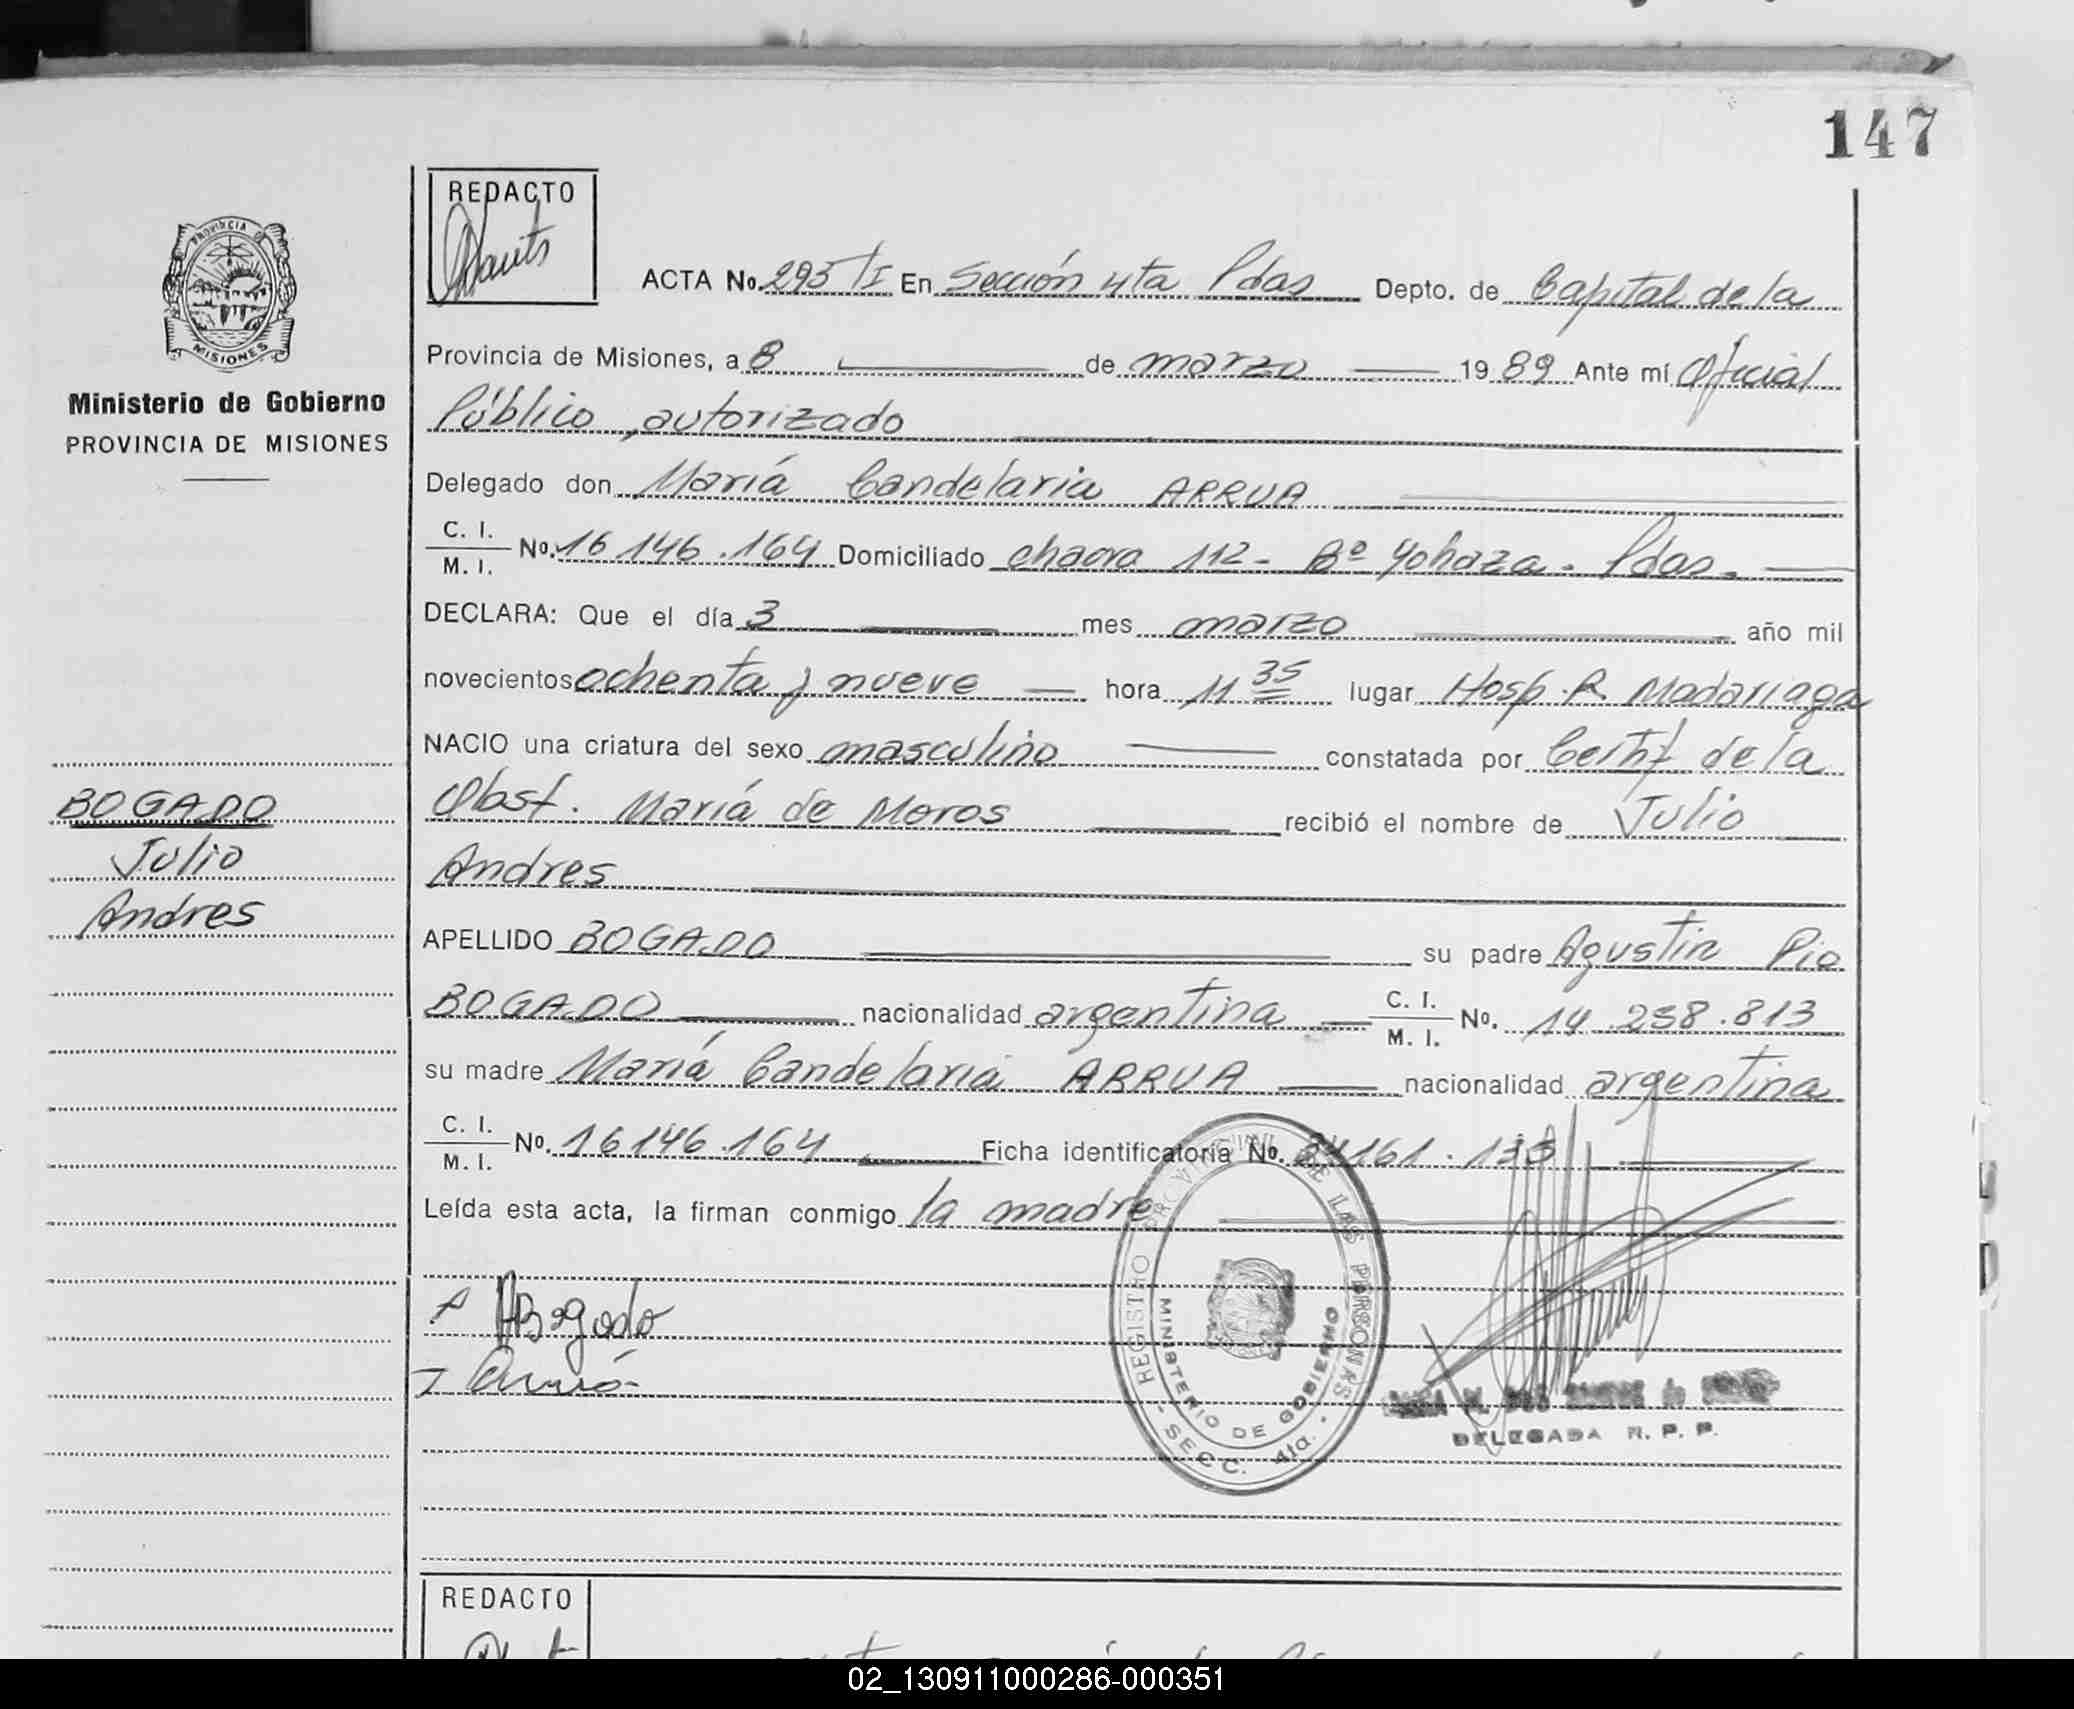 147
REDACTO
ACTA No. 295 /I En Sección 4ta Pdas Depto. de Capital de la
PROVINCIA DE MISIONES
Ministerio de Gobierno
PROVINCIA DE MISIONES
Provincia de Misiones, a 8 de marzo 1989 Ante mí Oficial
Público autorizado
Delegado don María Candelaria ARRUA
C. I.
M. I. No. 16 146.164 Domiciliado chacra 112- Bº Yohaza - Pdas.
DECLARA: Que el día 3 mes marzo año mil
novecientos ochenta y nueve hora 11 35 lugar Hosp. R. Madariaga
NACIO una criatura del sexo masculino constatada por Certif de la
Obst. María de Moros recibió el nombre de Julio
Andres
APELLIDO BOGADO su padre Agustin Pio
BOGADO nacionalidad argentina C. I.
M. I. No. 14.238.813
su madre María Candelaria ARRUA nacionalidad argentina
C. I.
M. I. No. 16146.164 Ficha identificatoria No. 34161.133
Leída esta acta, la firman conmigo la madre
BOGADO
Julio
Andres
ABogado
REGISTRO PROVINCIAL DE LAS PERSONAS
MINISTERIO DE GOBIERNO
- SECC. 4ta. -
DELEGADA R. P. P.
REDACTO
02_130911000286-000351